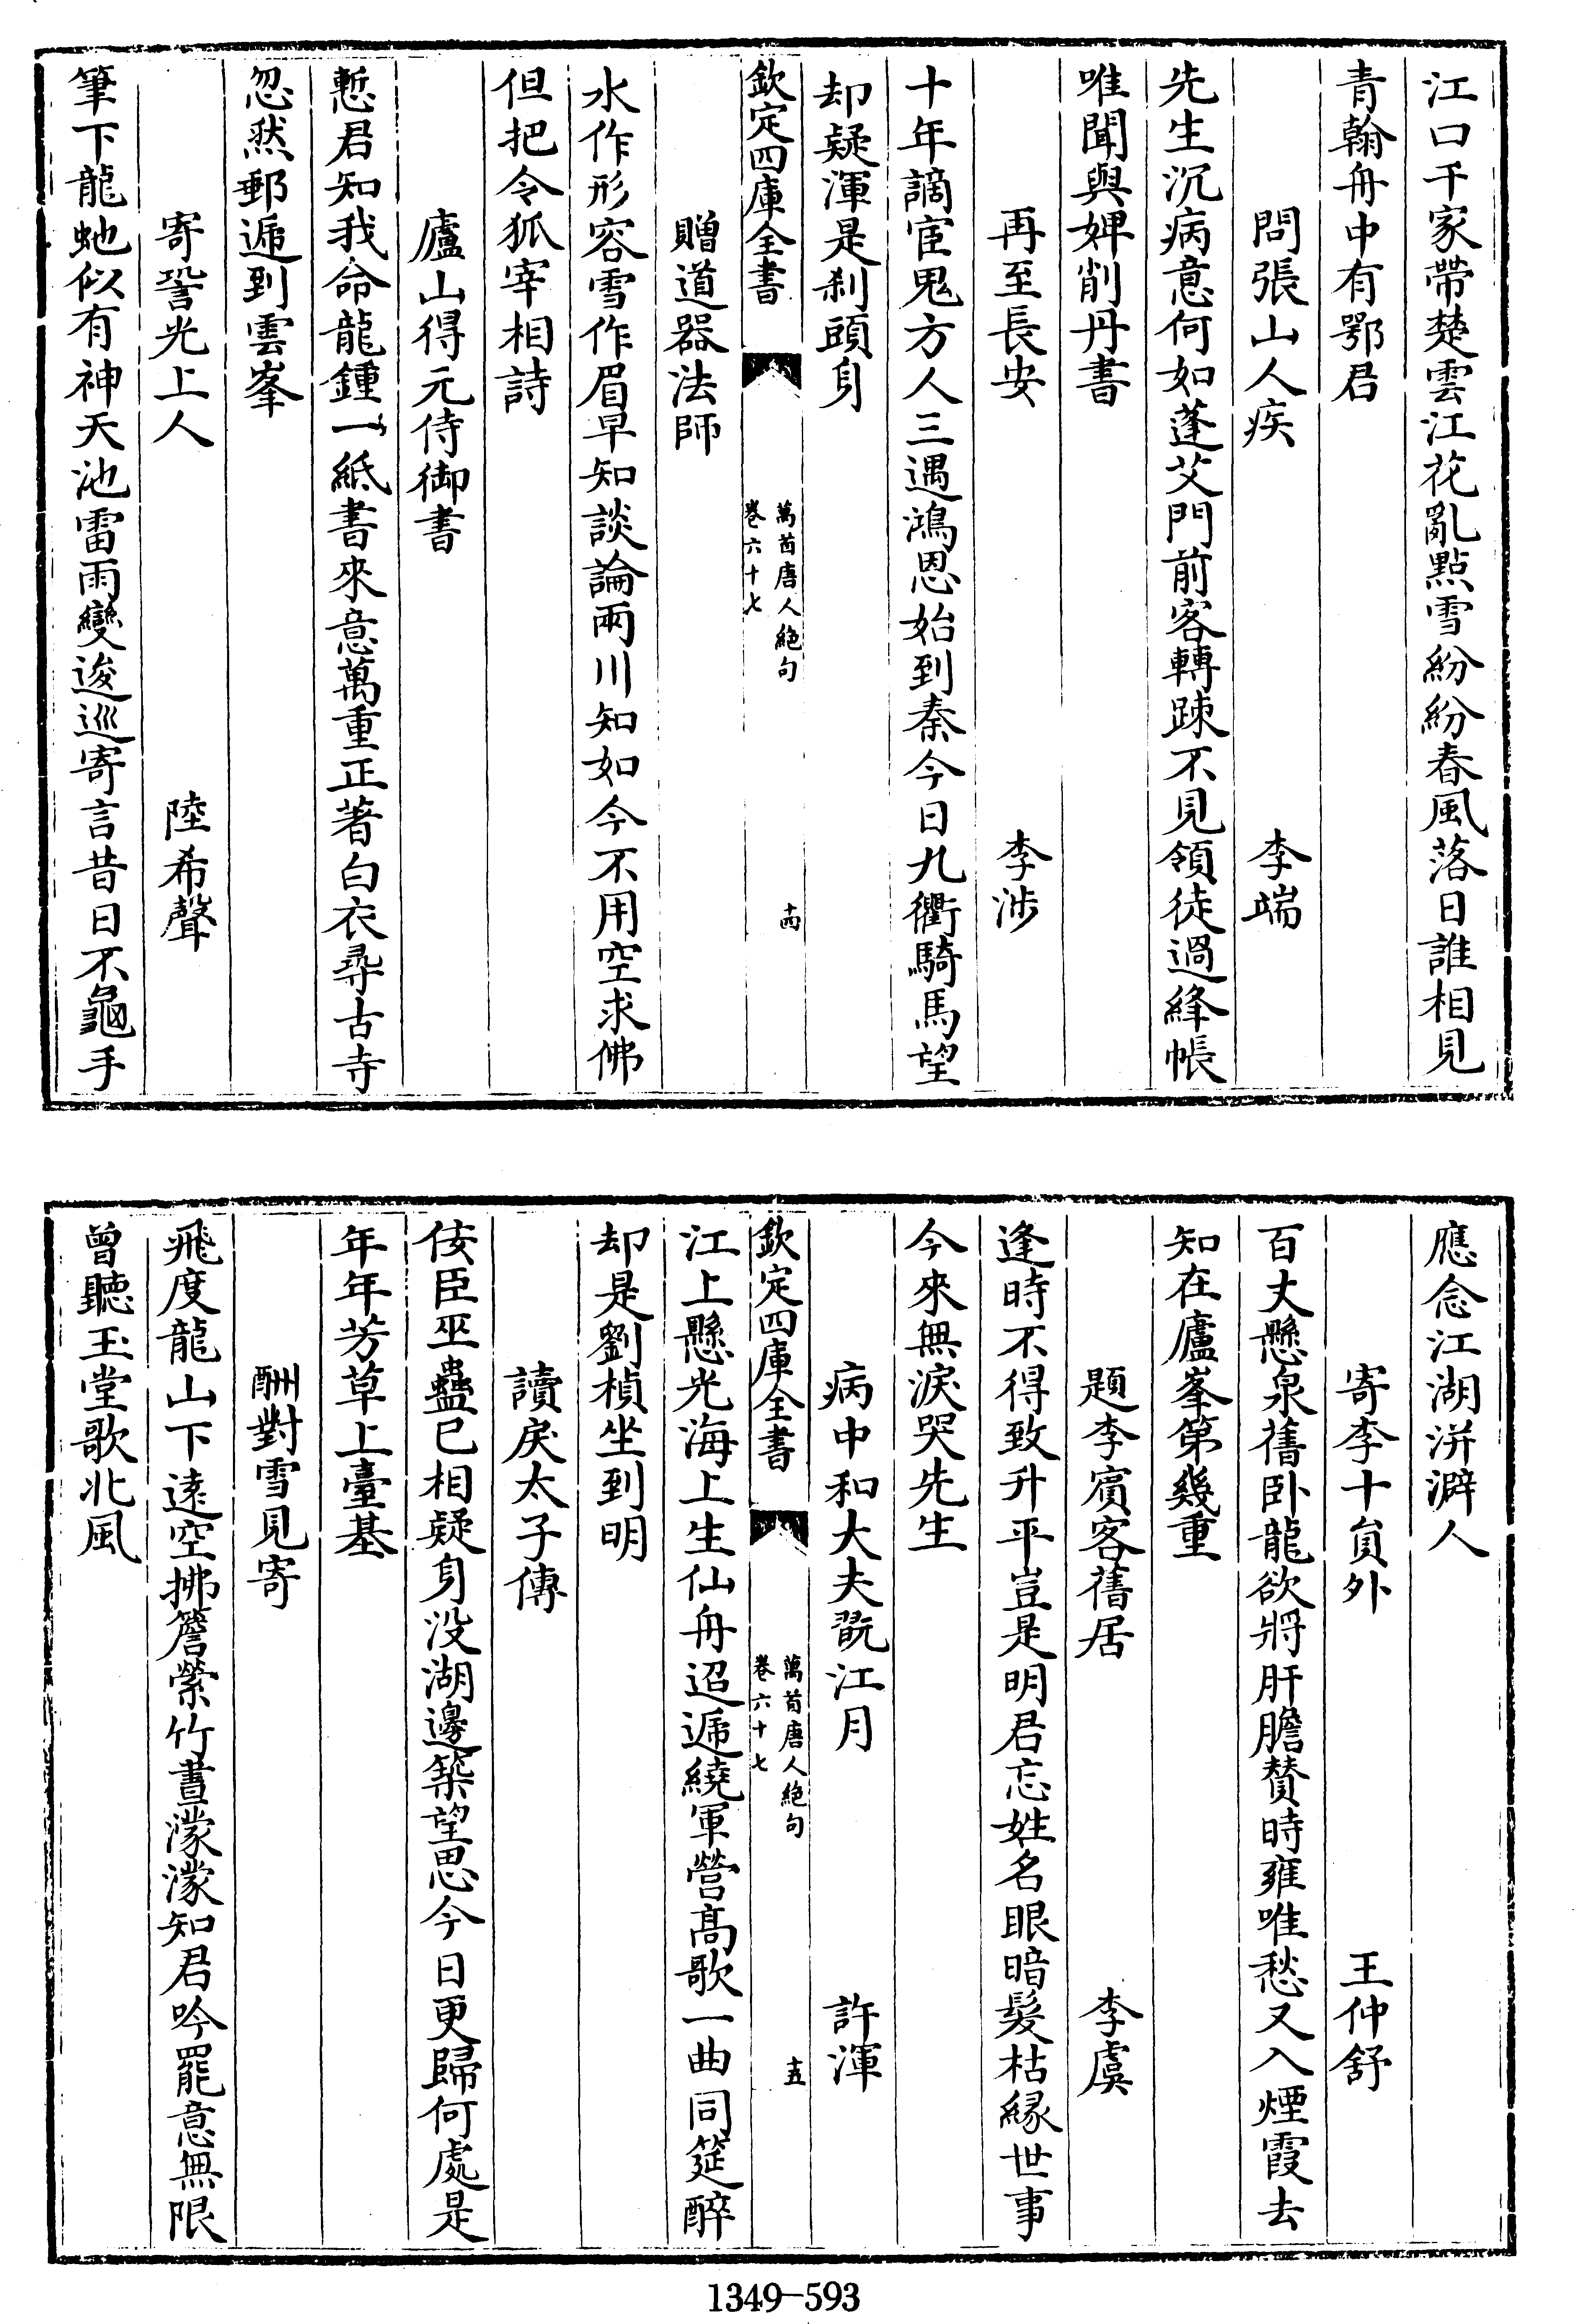 江口千家帶楚雲江花亂點雪紛紛春風落日誰相見
青翰舟中有鄂君
問張山人疾 李端
先生沉病意何如蓬艾門前客轉踈不見領徒過絳帳
唯聞與婢削丹書
再至長安 李渉
十年謫宦鬼方人三遇鴻恩始到秦今日九衢騎馬望
却疑渾是刹頭身
欽定四庫全書 萬首唐人絶句 卷六十七 十四
贈道器法師
水作形容雪作眉早知談論兩川知如今不用空求佛
但把令狐宰相詩
廬山得元侍御書
慙君知我命龍鍾一紙書來意萬重正著白衣尋古寺
忽然郵遞到雲峯
寄𧩙光上人 陸希聲
筆下龍虵似有神天池雷雨變逡巡寄言昔日不龜手
應念江湖洴澼人
寄李十員外 王仲舒
百丈懸泉舊卧龍欲將肝膽賛時雍唯愁又入煙霞去
知在廬峯第幾重
題李賓客舊居 李虞
逢時不得致升平豈是明君忘姓名眼暗髮枯縁世事
今來無淚哭先生
病中和大夫翫江月 許渾
欽定四庫全書 萬首唐人絶句 卷六十七 十五
江上懸光海上生仙舟迢遞繞軍營髙歌一曲同筵醉
却是劉楨坐到明
讀戾太子傳
佞臣巫蠱已相疑身没湖邊築望思今日更歸何處是
年年芳草上臺基
酬對雪見寄
飛度龍山下逺空拂簷縈竹晝濛濛知君吟罷意無限
曾聽玉堂歌北風
1349—593